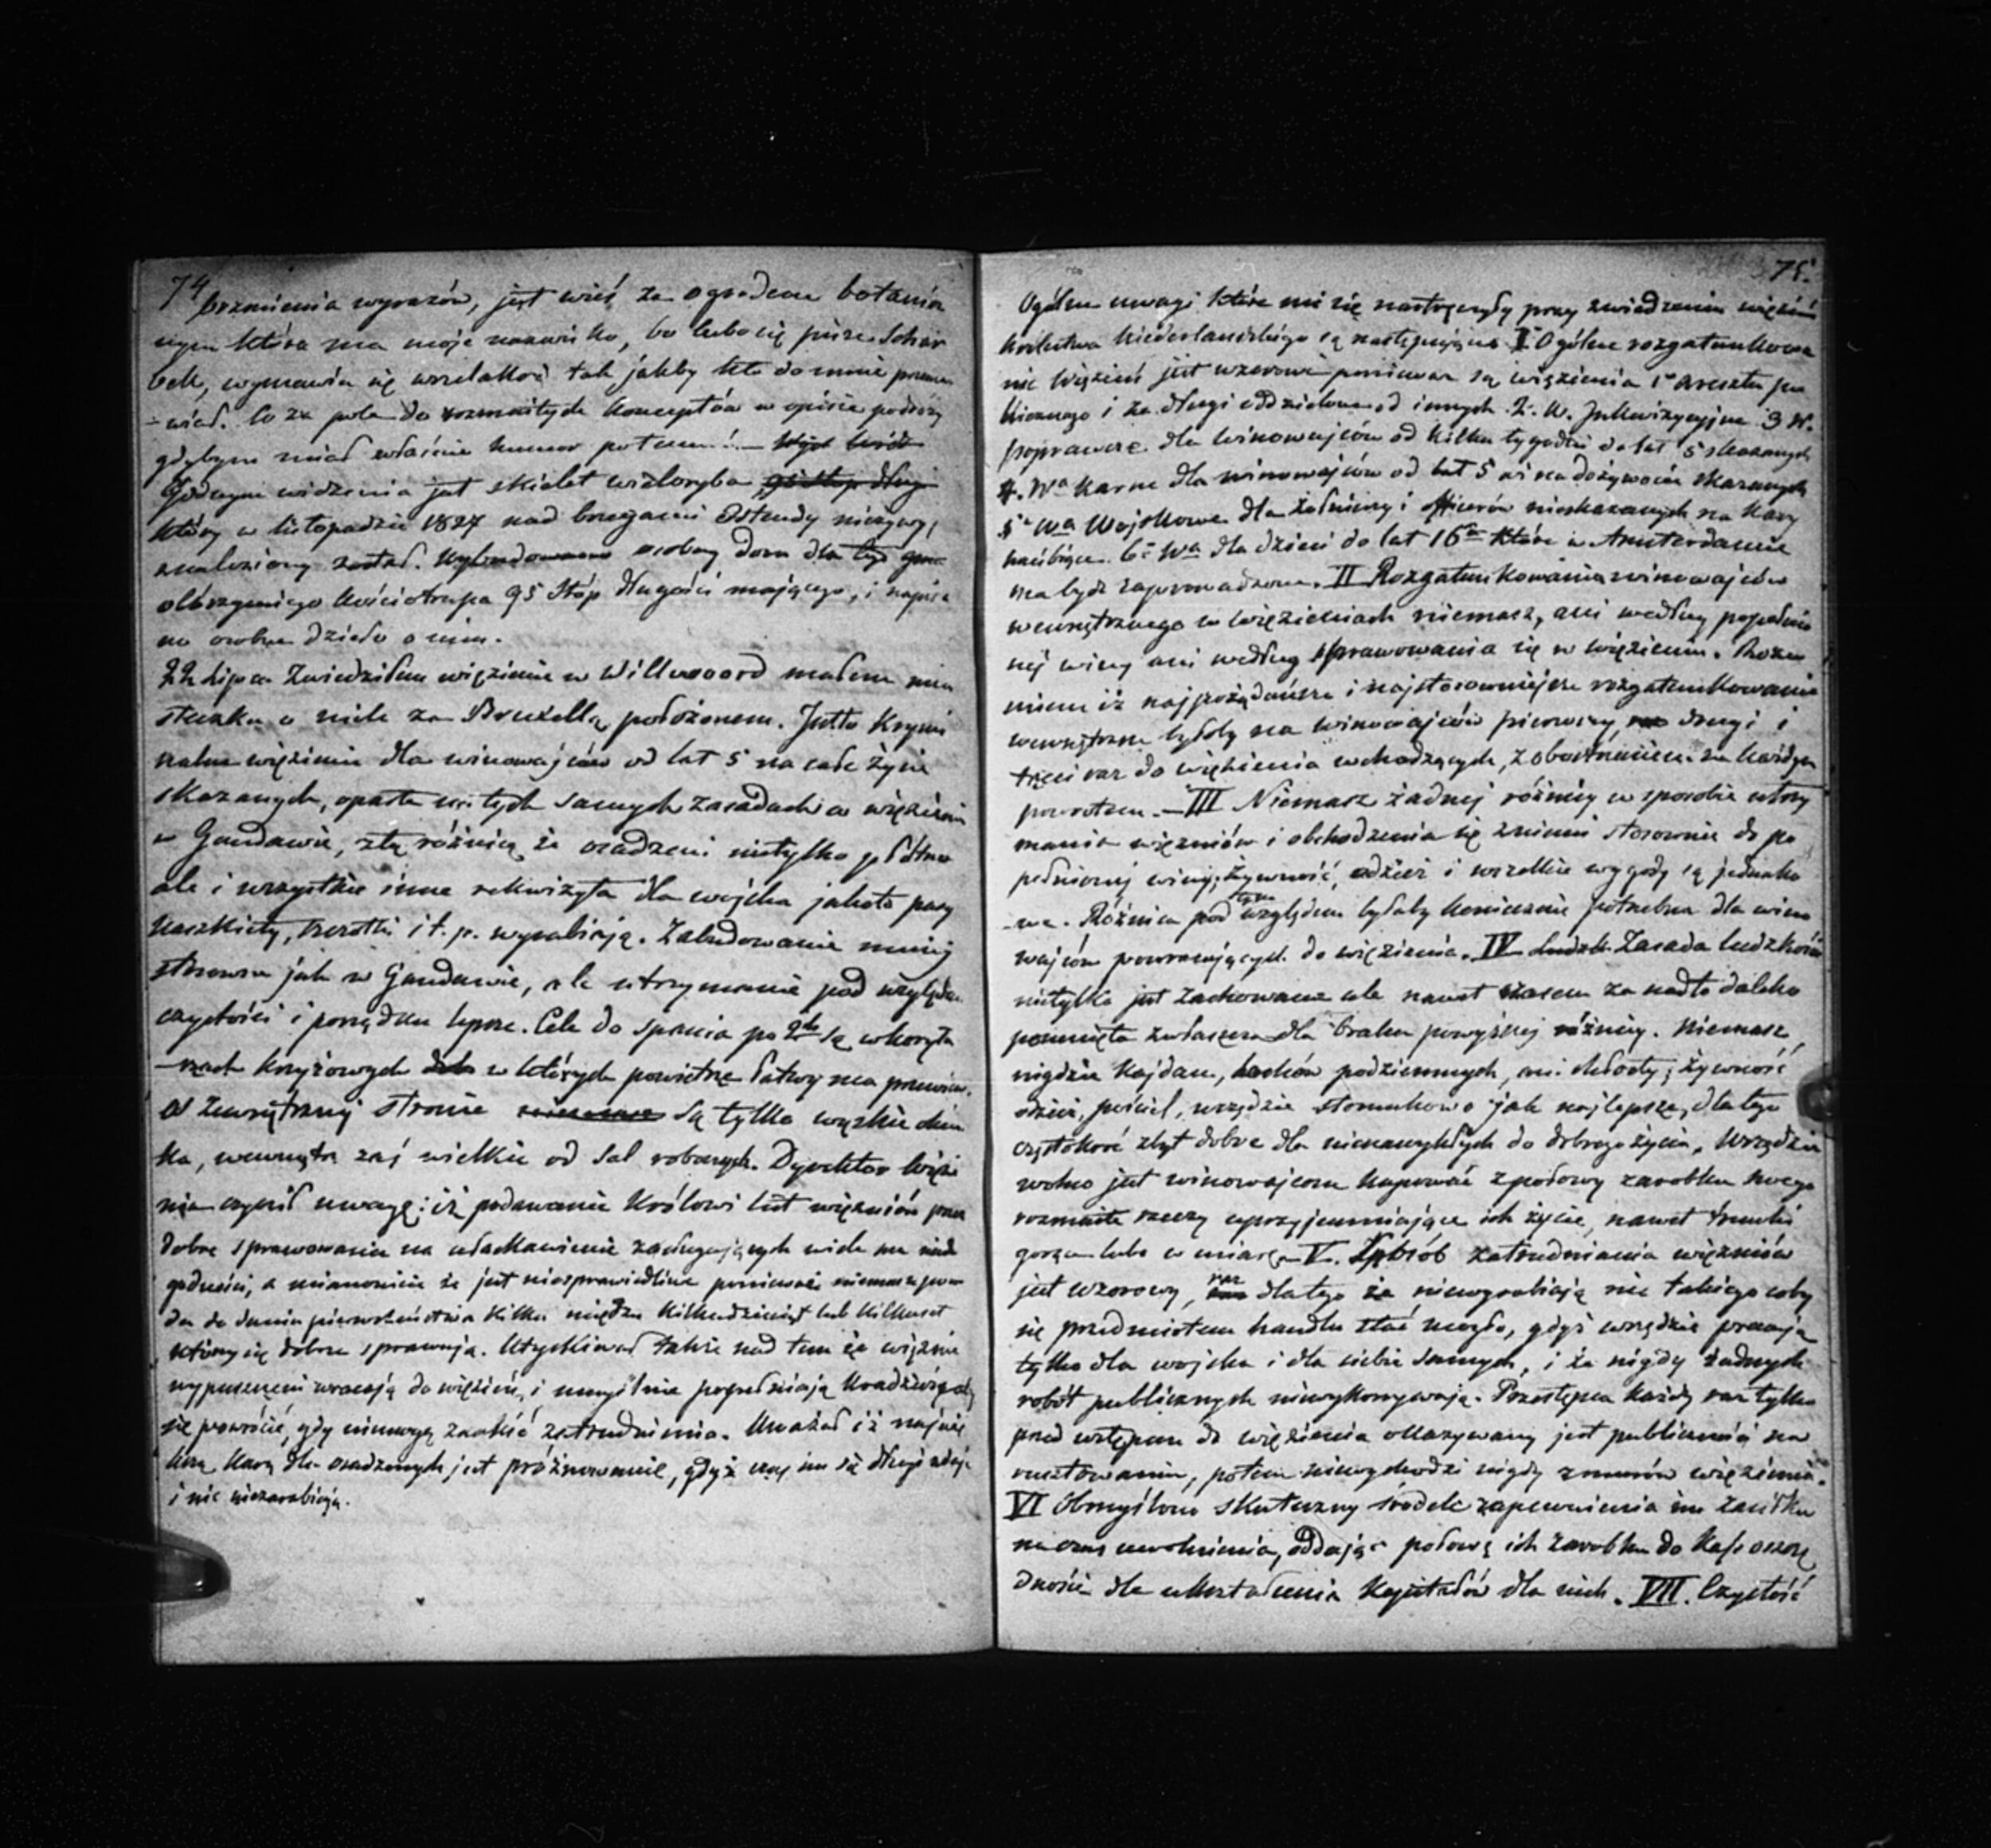 74
brzmienia wyrazów, jest wieś za ogrodem botanicz
nym która ma moje nazwisko, bo lubo się pisze Schar
beck, wymawia się wszelakoż tak jakby kto do mnie przema
-wiał. Co za pole do rozmaitych konceptów w opisie podróży
gdybym miał właśnie humor potemu! —
Godnym widzenia jest skielet wieloryba 95 stop długi
który w listopadzie 1827 nad brzegami Ostendy nieżywy,
znaleziony został. Wybudowano osobny dom dla tego
olbrzymiego kościotrupa 95 stóp długości mającego, i napisa
no osobne dzieło o nim.
22 Lipca Zwiedziłem więzienie w Willwoord małem mia
steczku o mile za Bruxellą położonem. Jestto krymi
nalne więzienie dla winowajców od lat 5 na całe życie
skazanych, oparte na tych samych zasadach co więzienie
w Gandawie, z tą różnicą że osadzeni nietylko płótno
ale i wszystkie inne rekwizyta dla wojska jakoto pasy
kaszkiety, trzewiki i t. p. wyrabiają. Zabudowanie mniej
stosowne jak w Gandawie, ale utrzymanie pod względem
czystości i porządku lepsze. Cele do spania po 2ch są w koryta
-rzach krzyżowych w których powietrze łatwy ma przewiew.
Od zewnętrznej stronie są tylko wązkie okien
ka, wewnątrz zaś wielkie od sal roboczych. Dyrektor więzie
nia czynił uwagę: iż podawanie Królowi list więzniów przez
dobre sprawowanie na ułaskawienie zasługujących wiele ma nied
godności, a mianowicie że jest niesprawiedliwe ponieważ niemasz powo
du do dania pierwszeństwa kilku między kilkudziesiąt lub kilkuset
którzy się dobrze sprawują. Utyskiwał także nad tem że więznie
wypuszczeni wracają do więzień, i umyślnie popełniają kradzież żeby
się powrócić, gdy niemogą znaleść zatrudnienia. Uważał iż najwię
kszą karą dla osadzonych jest próżnowanie, gdyż czas im się długi zdaje
i nic niezarabiają.
75.
Ogólne uwagi które mi się nastręczyły przy zwiedzeniu więzień
Królestwa Niederlandzkiego są następujące I Ogólne rozgatunkowa
nie więzień jest wzorowe ponieważ są więzienia 1° aresztu po
licznego i za długi oddzielone od innych 2. W. Inkwizycyjne 3 W.
poprawcze dla winowajców od kilku tygodni do lat 5 skazanych
4. Wa Karne dla winowajców od lat 5 aż na dożywocie skazanych
5° Wa Wojskowe dla żołnierzy i officerów nieskazanych na kary
hańbiące. 6° Wa dla dzieci do lat 16 które w Amsterdamie
ma bydź zaprowadzone. II Rozgatunkowania winowajców
wewnętrznego w więzieniach niemasz, ani według popełnio
nej winy ani według sprawowania się w więzieniu. Rozu
miem iż najpożądańsze i najstosowniejsze rozgatunkowanie
wewnętrzne byłoby na winowajców pierwszy, drugi i
trzeci raz do więzienia wchodzących, z obostrzeniem za każdym
powrotem. — III Niemasz żadnej różnicy w sposobie utrzy
mania więzniów i obchodzenia się z niemi stosownie do po
pełnionej winy; żywność, odzież i wszelkie wygody są jednako
-we. Różnica pod tym względem byłaby koniecznie potrzebna dla wino
wajców powracających do więzienia. IV Zasada ludzkości
nietylko jest zachowana ale nawet czasem za nadto daleko
posunięta zwłaszcza dla braku powyższej różnicy. Niemasz
nigdzie kajdan, lochów podziemnych, ani chłosty; żywność
odzież, pościel, wszędzie stosunkowo jak najlepsze, dlatego
częstokroć zbyt dobre dla nienawykłych do dobrego życia. Wszędzie
wolno jest winowajcom kupować z połowy zarobku swego
rozmaite rzeczy uprzyjemniające ich życie, nawet trunki
gorące lubo w miarę. — V. Sposób zatrudniania więzniów
jest wzorowy, raz dlatego że niewyrabiają nic takiego coby
się przedmiotem handlu stać mogło, gdyż wszędzie pracują
tylko dla wojska i dla siebie samych, i że nigdy żadnych
robót publicznych niewykonywają. Przestępca każdy raz tylko
przed wstępem do więzienia okazywany jest publiczności na
rusztowaniu, potem niewychodzi nigdy z murów więzienia.
VI Obmyślono skuteczny środek zapewnienia im zasiłku
na czas uwolnienia, oddając połowę ich zarobku do Kass oszczę
dności dla ukształcenia kapitałów dla nich. VII. Czystość